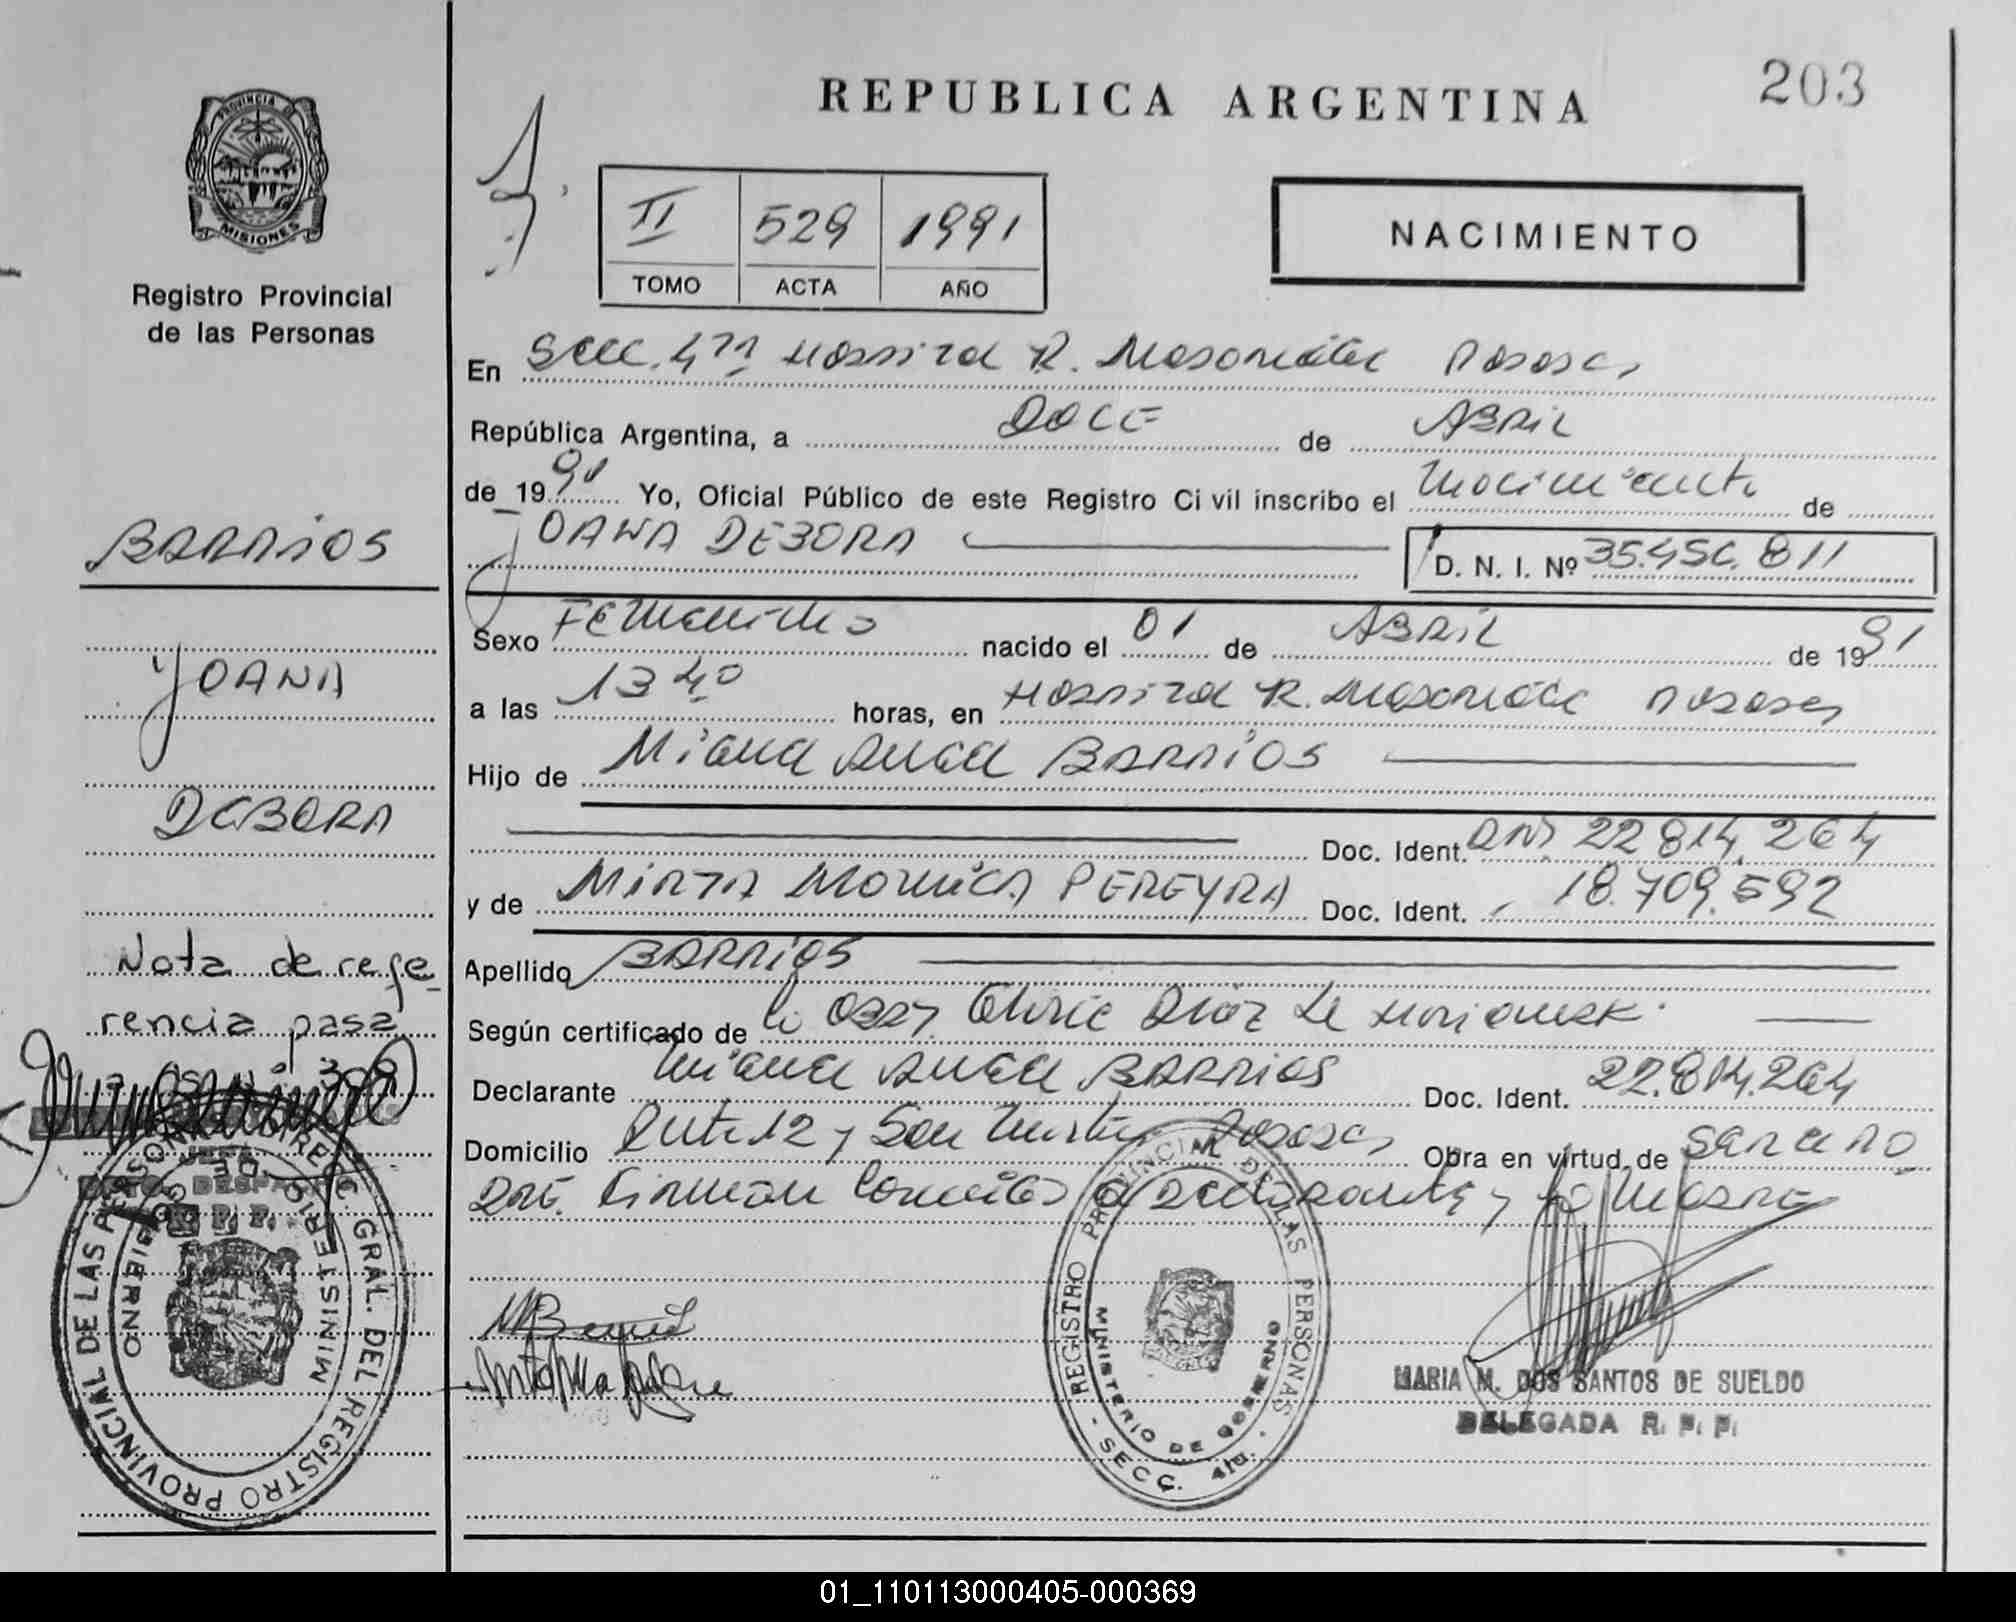 REPUBLICA ARGENTINA
203
PROVINCIA DE
MISIONES
Registro Provincial
de las Personas
II 529 1991
TOMO ACTA AÑO
NACIMIENTO
En Secc. 4ta Hospital R. Madariaga Posadas
República Argentina, a DOCE de ABRIL
de 1991 Yo, Oficial Público de este Registro Civil inscribo el nacimiento de
YOANA DEBORA D. N. I. Nº 35.456.811
Sexo Femenino nacido el 01 de ABRIL de 1991
a las 13 40 horas, en Hospital R. Madariaga Posadas
Hijo de Miguel Angel BARRIOS
Doc. Ident. DNI 22 814.264
y de MIRTA MONICA PEREYRA Doc. Ident. 18.709.592
Apellido BARRIOS
Según certificado de
Declarante Miguel Angel BARRIOS Doc. Ident. 22.814.264
Domicilio Ruta 12 y San Martin Posadas Obra en virtud de
Firman declarante y
MARIA M. DOS SANTOS DE SUELDO
DELEGADA R. P. P.
REGISTRO PROVINCIAL DE LAS PERSONAS
MINISTERIO DE GOBIERNO
- SECC. 4ta. -
BARRIOS
YOANA
DEBORA
Nota de refe
rencia pasa
DIREC. GRAL. DEL REGISTRO PROVINCIAL DE LAS PERSONAS
MINISTERIO DE GOBIERNO
01_110113000405-000369